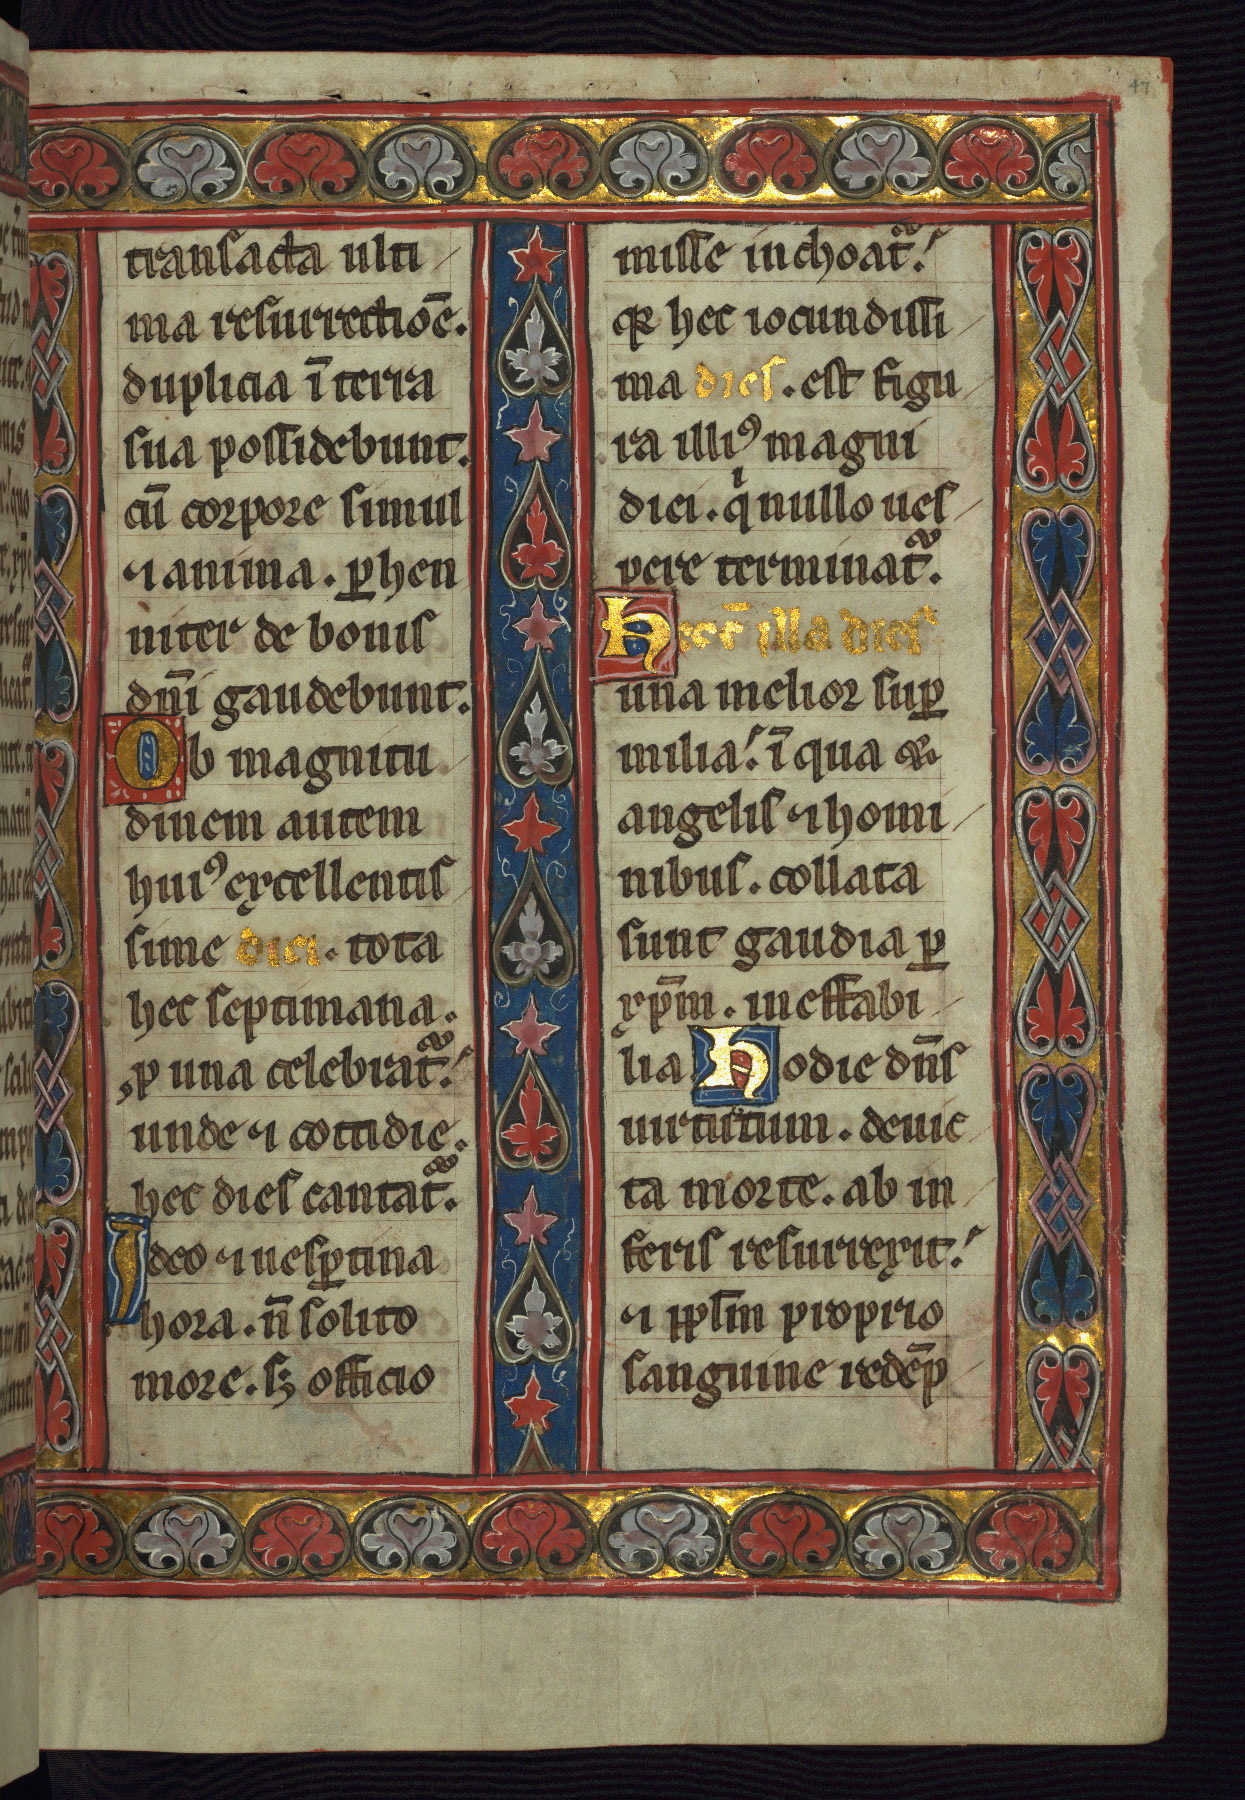 47
transacta ulti
ma resurrectiōe.
duplicia ī terra
sua possidebunt.
cū corpore simul
⁊ anima. ꝑhen
niter de bonis
dn̄i gaudebunt.
Ob magnitu
dinem autem
huiꝰ excellentis
sime diei. tota
hec septimana.
ꝓ una celebrat᷑.
unde ⁊ cottidie.
hec dies cantat᷑.
Ideo ⁊ uesꝑtina
hora. n̄ solito
more. sꝫ officio
misse inchoat᷑.
qꝛ hec iocundissi
ma dies. est figu
ra illiꝰ magni
diei. qͥ nullo ues
pere terminat᷑.
Hec ē illa dies
una melior suꝑ
milia. ī qua
angelis ⁊ homi
nibus. collata
sunt gaudia ꝑ
xp̄m. ineffabi
lia Hodie dn̄s
uirtutum. deuic
ta morte. ab in
feris resurrexit.
⁊ pp̄lm proprio
sanguine redēp